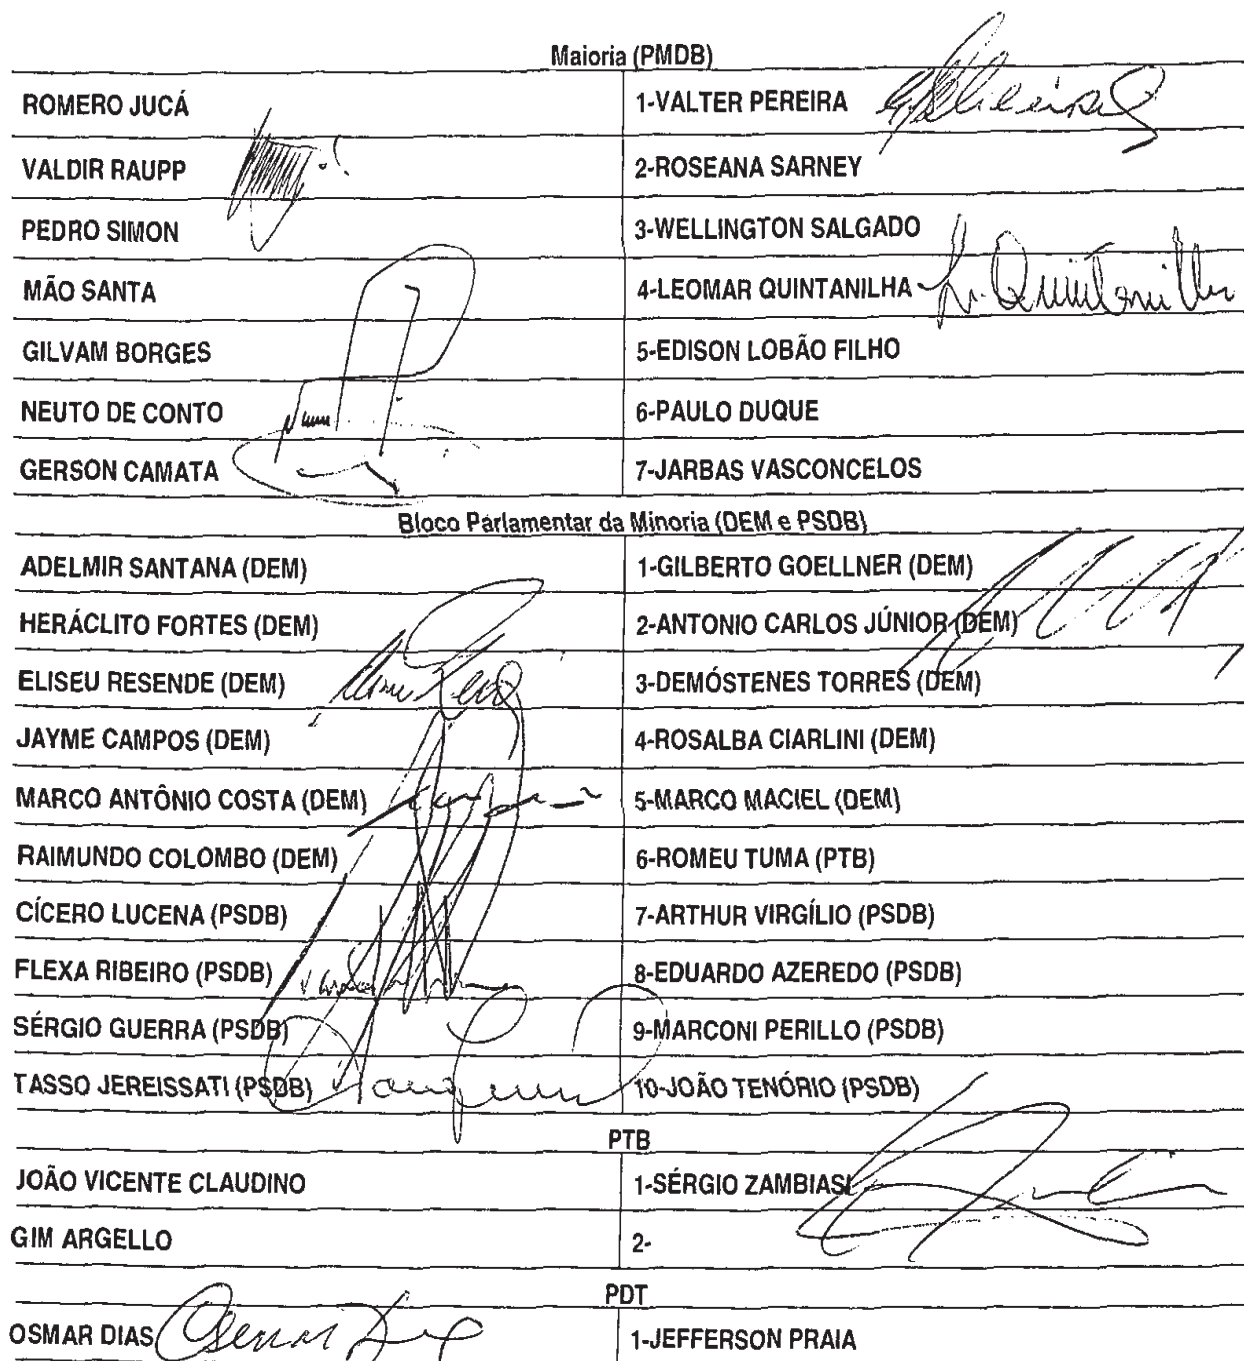 Maioria (PMDB)
ROMERO JUCÁ 1-VALTER PEREIRA
VALDIR RAUPP 2-ROSEANA SARNEY
PEDRO SIMON 3-WELLINGTON SALGADO
MÃO SANTA 4-LEOMAR QUINTANILHA L. Quintanilha
GILVAM BORGES 5-EDISON LOBÃO FILHO
NEUTO DE CONTO 6-PAULO DUQUE
GERSON CAMATA 7-JARBAS VASCONCELOS
Bloco Parlamentar da Minoria (DEM e PSDB)
ADELMIR SANTANA (DEM) 1-GILBERTO GOELLNER (DEM)
HERÁCLITO FORTES (DEM) 2-ANTONIO CARLOS JÚNIOR (DEM)
ELISEU RESENDE (DEM) 3-DEMÓSTENES TORRES (DEM)
JAYME CAMPOS (DEM) 4-ROSALBA CIARLINI (DEM)
MARCO ANTÔNIO COSTA (DEM) 5-MARCO MACIEL (DEM)
RAIMUNDO COLOMBO (DEM) 6-ROMEU TUMA (PTB)
CÍCERO LUCENA (PSDB) 7-ARTHUR VIRGÍLIO (PSDB)
FLEXA RIBEIRO (PSDB) 8-EDUARDO AZEREDO (PSDB)
SÉRGIO GUERRA (PSDB) 9-MARCONI PERILLO (PSDB)
TASSO JEREISSATI (PSDB) 10-JOÃO TENÓRIO (PSDB)
PTB
JOÃO VICENTE CLAUDINO 1-SÉRGIO ZAMBIASI
GIM ARGELLO 2-
PDT
OSMAR DIAS Osmar Dias 1-JEFFERSON PRAIA